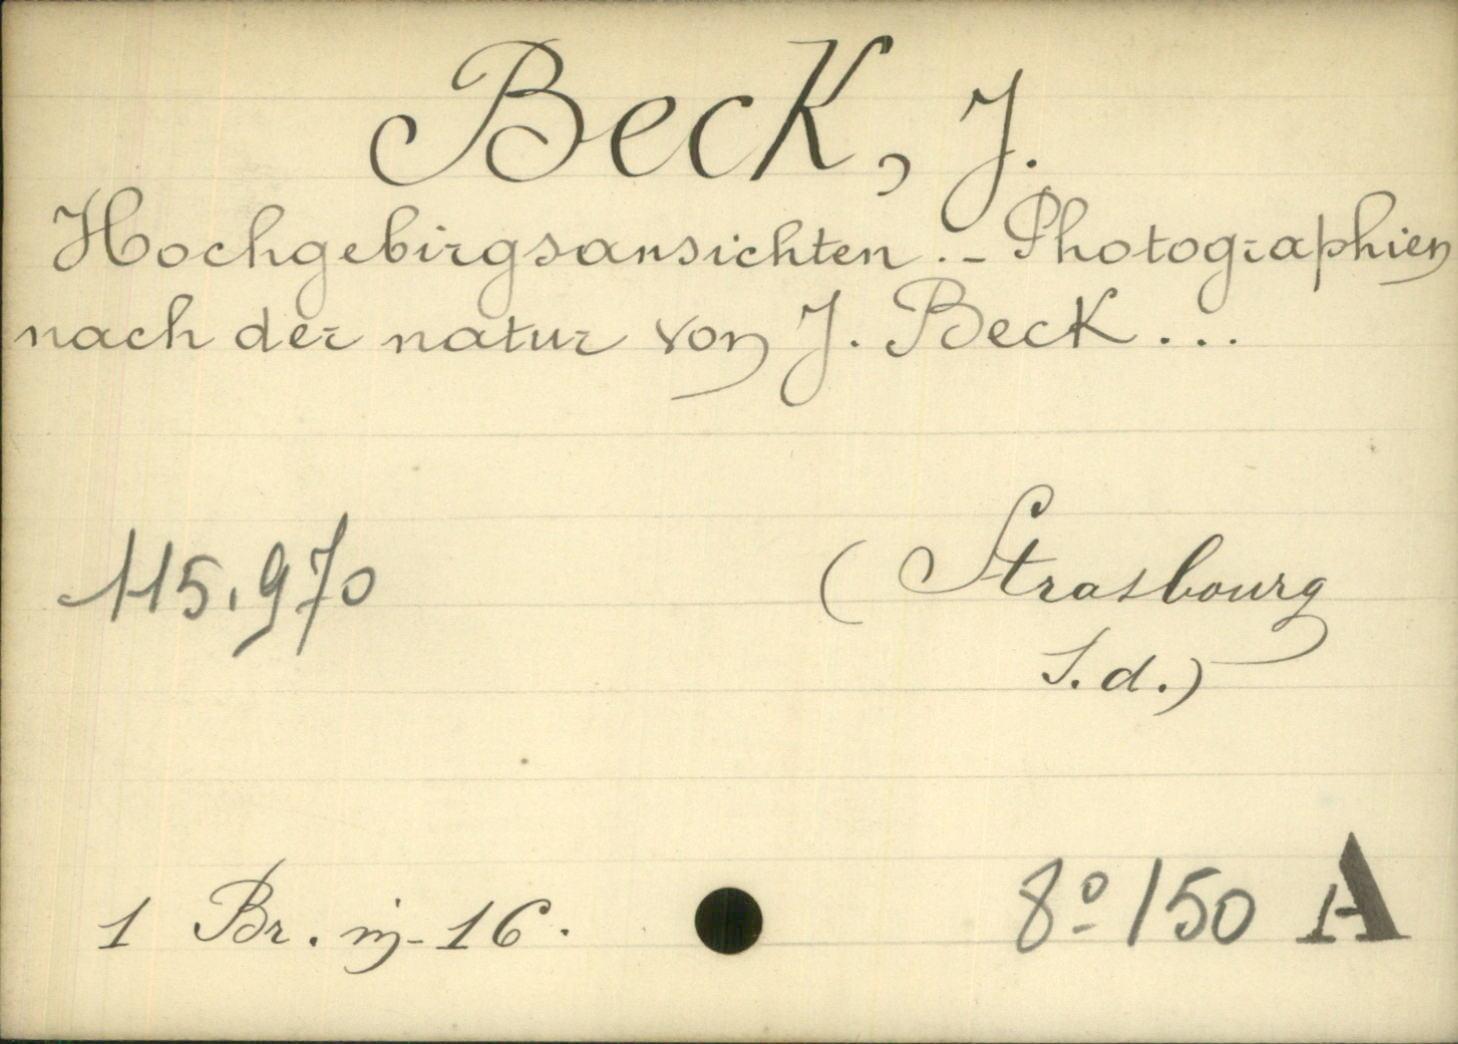 Beck, J.
Hochgebirgsansichten. - Photographien
nach der natur von J. Beck...
115.970
(Strasbourg
S.d.)
1 Br. in-16.
8º 150 A